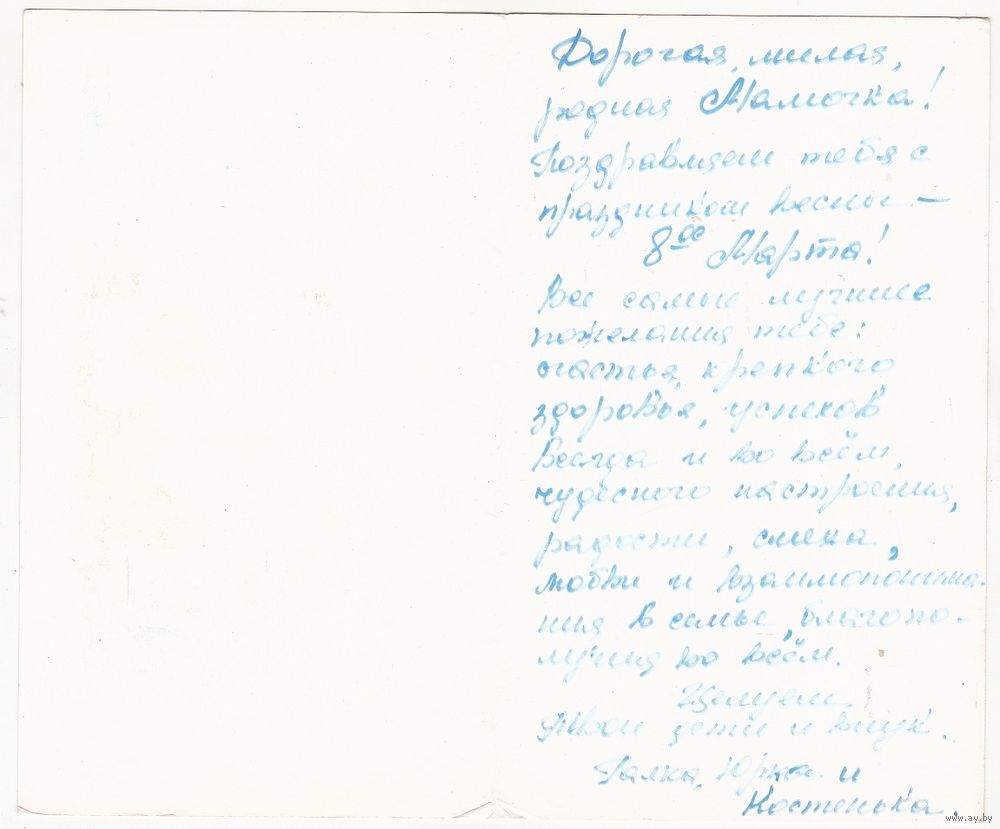 Дорогая, милая,
родная Мамочка!
Поздравляем тебя с
праздником весны —
8ое Марта!
Все самые лучшие
пожелания тебе:
счастья, крепкого
здоровья, успехов
всегда и во всём,
чудесного настроения,
радости, смеха,
любви и взаимопонима-
ния в семье, благопо-
лучия во всём.
Целуем.
Твои дети и внук.
Галка, Юрка и
Костенька.
www.ay.by